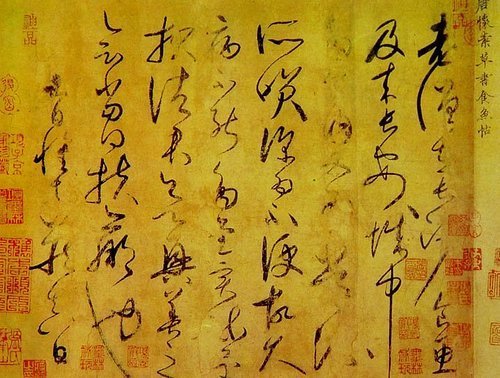 唐懷素草書食魚帖
老僧在長沙食魚
及來長安城中
多食肉又為常流
所笑深為不便故久
病不能多書實疏還
報諸君欲興善之
會當得扶羸也
日懷素藏真白